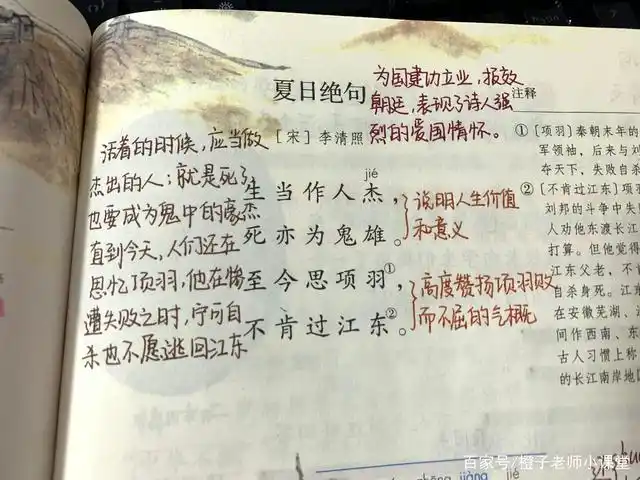 夏日绝句
[宋] 李清照
为国建功立业，报效
朝廷，表现了诗人强
烈的爱国情怀。
活着的时候，应当做
杰出的人；就是死了
也要成为鬼中的豪杰
直到今天，人们还在
思忆项羽，他在惨
遭失败之时，宁可自
杀也不愿逃回江东
jié
生当作人杰，
死亦为鬼雄。
至今思项羽①，
不肯过江东②。
说明人生价值
和意义
高度赞扬项羽败
而不屈的气概
注释
①[项羽]秦朝末年的
军领袖，后来与刘
夺天下，失败自杀
②[不肯过江东]项羽
刘邦的斗争中失
人劝他东渡长江
打算。但他觉得
江东父老，不
自杀身死。江东
在安徽芜湖、
间作西南、东
古人习惯上称
的长江南岸地
百家号/橙子老师小课堂